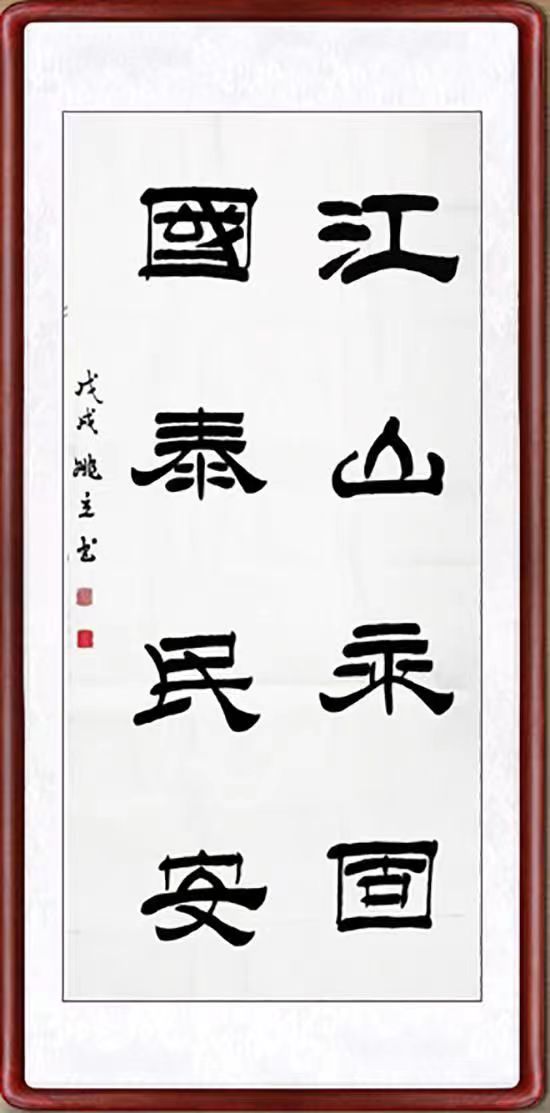 江山永固
國泰民安
戊戌 姚立书